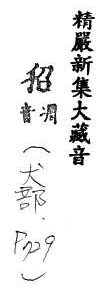 精嚴新集大藏音
音凋
（犬部．
P.729）